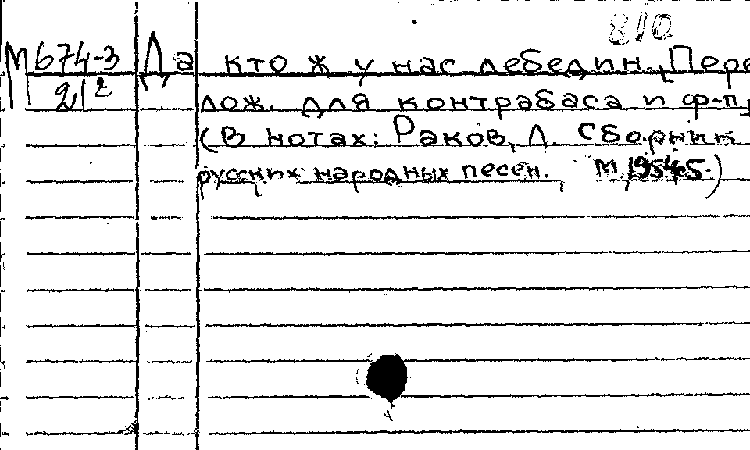 810
М 674-3 Да кто ж у нас лебедин. Пере
2/2 лож. для контрабаса и ф-п.
(В нотах: Раков, Л. Сборник
русских народных песен. М.